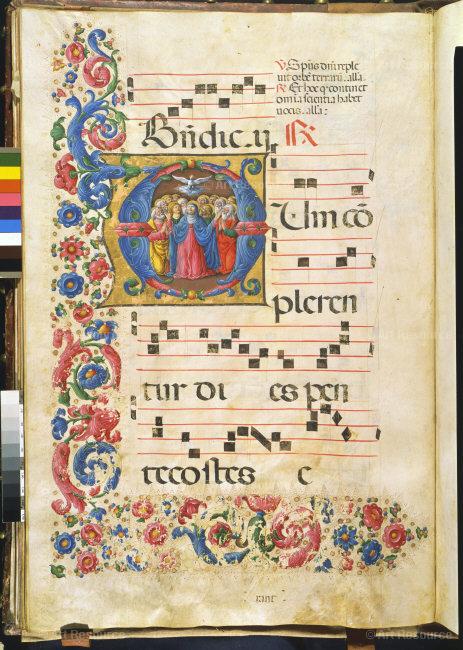 ℣ Spūs dn̄i reple
uit orbē terrarū. alla.
℟ Et hoc q̄ continet
omīa scientiā habet
uocis. alla.
Bn̄dic. ij ℟
DUm cō
pleren
tur di es pen
tecostes e
© Art Resource
© Art Resource